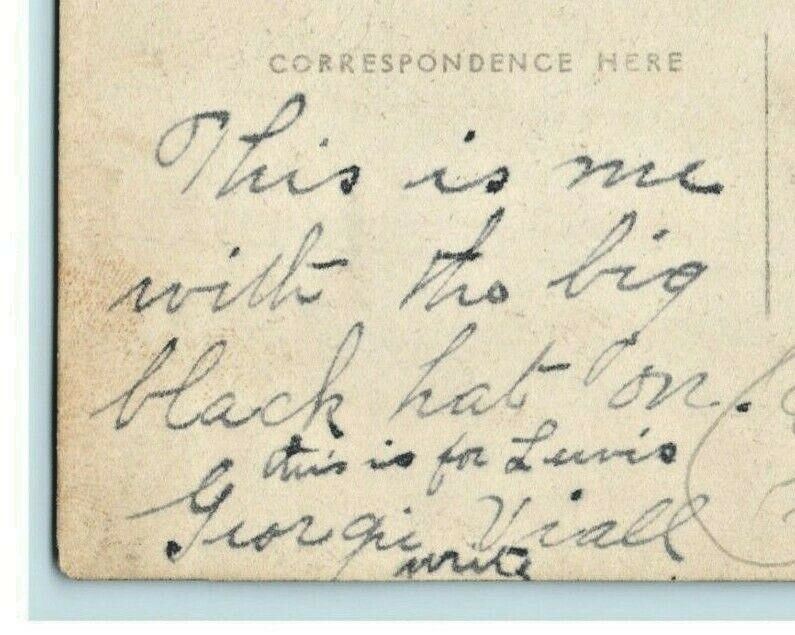 CORRESPONDENCE HERE
This is me
with the big
black hat on.
this is for Lewis
Georgi Viall
write